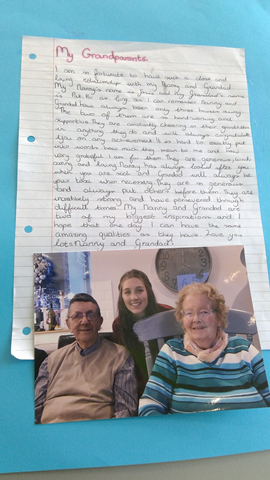 My Grandparents.
I am so fortunate to have such a close and
loving relationship with my Nanny and Grandad.
My Nanny's name is and my Grandad's name
is Pat. For as long as I can remember Nanny and
Grandad have always been only three houses away.
The two of them are so hard-working and
supportive. They are constantly cheering on their grandchildren
in anything they do and will always congratulate
you on any achievement. It's so hard to exactly put
into words how much they mean to me and how
very grateful I am for them. They are generous, kind,
caring and loving. Nanny has always looked after you
when you are sick and Grandad will always be
your taxi when necessary. They are so generous
and always put others before them. They are
incredibly strong and have persevered through
difficult times. My Nanny and Grandad are
two of my biggest inspirations and I
hope that one day I can have the same
amazing qualities as they have. Love you
lots Nanny and Grandad!